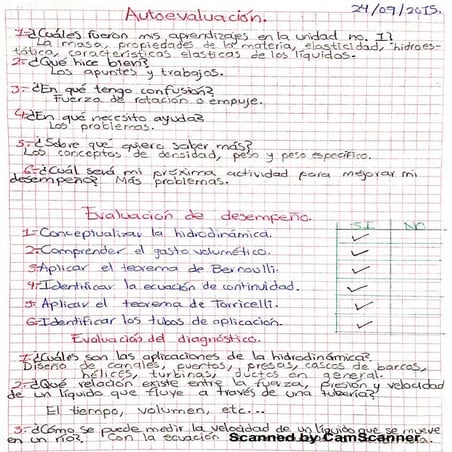 24/09/2015.
Autoevaluación.
1-¿Cuáles fueron mis aprendizajes en la unidad no. I?
La masa, propiedades de la materia, elasticidad, hidroes-
tática, características elasticas de los líquidos.
2-¿Qué hice bien?
Los apuntes y trabajos.
3-¿En qué tengo confusión?
Fuerza de rotación o empuje.
4-¿En qué necesito ayuda?
Los problemas.
5-¿Sobre qué quiero saber más?
Los conceptos de densidad, peso y peso específico.
6-¿Cuál será mi próxima actividad para mejorar mi
desempeño? Más problemas.
Evaluación de desempeño.
SI NO
1-Conceptualizar la hidrodinámica. ✓
2-Comprender el gasto volumétrico. ✓
3-Aplicar el teorema de Bernoulli. ✓
4-Identificar la ecuación de continuidad. ✓
5-Aplicar el teorema de Torricelli. ✓
6-Identificar los tubos de aplicación. ✓
Evaluación del diagnóstico.
1-¿Cuáles son las aplicaciones de la hidrodinámica?
Diseño de canales, puertos, presas, cascos de barcos,
hélices, turbinas, ductos en general.
2-¿Qué relación existe entre la fuerza, presión y velocidad
de un líquido que fluye a través de una tubería?
El tiempo, volumen, etc...
3-¿Cómo se puede medir la velocidad de un líquido que se mueve
en un río? Con la ecuación
Scanned by CamScanner